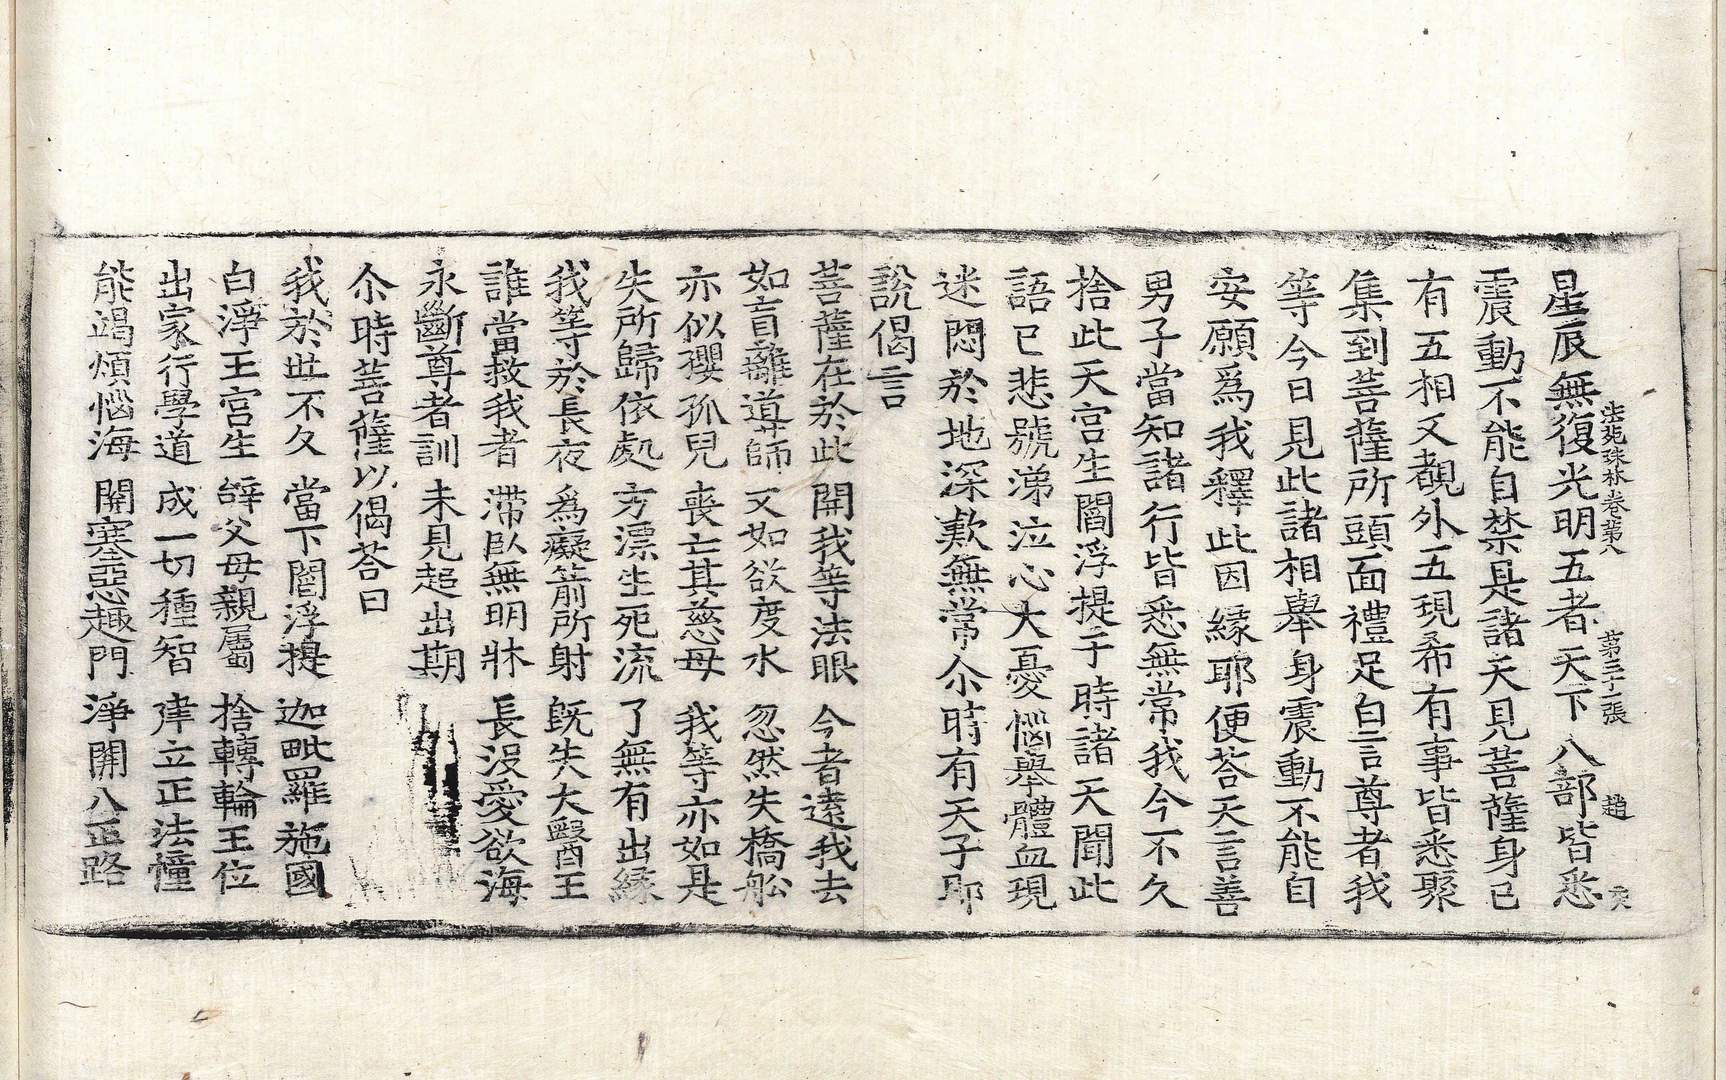 法苑珠林卷第八 第三十張 趙
星辰無復光明五者天下八部皆悉
震動不能自禁是諸天見菩薩身已
有五相又覩外五現希有事皆悉聚
集到菩薩所頭面禮足白言尊者我
等今日見此諸相舉身震動不能自
安願爲我釋此因縁耶便荅天言善
男子當知諸行皆悉無常我今不久
捨此天宮生閻浮提于時諸天聞此
語已悲號涕泣心大憂惱舉體血現
迷悶於地深歎無常尒時有天子耶
說偈言
菩薩在於此 開我等法眼 今者遠我去
如盲離道師 又如欲度水 忽然失橋舩
亦似孾孤兒 喪亡其慈母 我等亦如是
失所歸依處 方漂生死流 了無有出緣
我等於長夜 爲癡箭所射 旣失大醫王
誰當救我者 滯臥無明牀 長没愛欲海
永斷尊者訓 未見超出期
尒時菩薩以偈荅曰
我於世不久 當下閻浮提 迦毗羅施國
白淨王宮生 辭父母親屬 捨轉輪王位
出家行學道 成一切種智 建立正法憧
能竭煩惱海 關塞惡趣門 淨開八正路